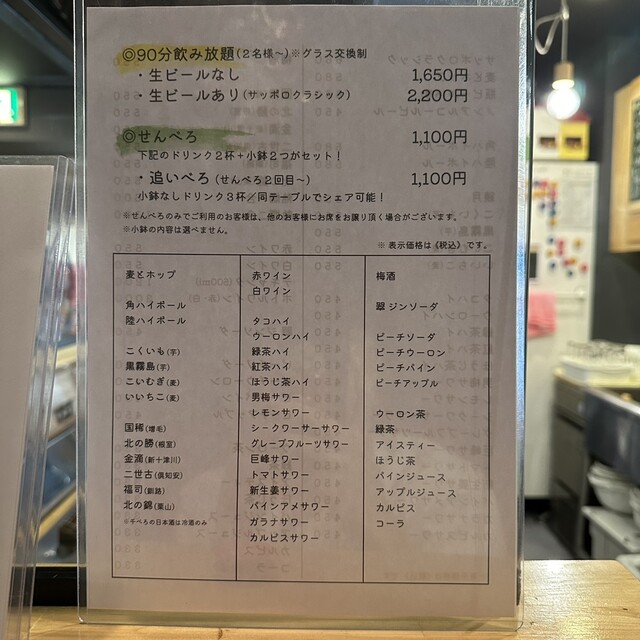 ◎90分飲み放題(2名様～)※グラス交換制
・生ビールなし 1,650円
・生ビールあり(サッポロクラシック) 2,200円
◎せんべろ 1,100円
下記のドリンク2杯+小鉢2つがセット！
・追いべろ(せんべろ2回目～) 1,100円
小鉢なしドリンク3杯／同テーブルでシェア可能！
※せんべろのみでご利用のお客様は、他のお客様にお席をお譲り頂く場合がございます。
※小鉢の内容は選べません。
※表示価格は《税込》です。
麦とホップ
角ハイボール
陸ハイボール
こくいも(芋)
黒霧島(芋)
こいむぎ(麦)
いいちこ(麦)
国稀(増毛)
北の勝(根室)
金滴(新十津川)
二世古(倶知安)
福司(釧路)
北の錦(栗山)
※千べろの日本酒は冷酒のみ
赤ワイン
白ワイン
タコハイ
ウーロンハイ
緑茶ハイ
紅茶ハイ
ほうじ茶ハイ
男梅サワー
レモンサワー
シークワーサーサワー
グレープフルーツサワー
巨峰サワー
トマトサワー
新生姜サワー
パインアメサワー
ガラナサワー
カルピスサワー
梅酒
翠ジンソーダ
ピーチソーダ
ピーチウーロン
ピーチパイン
ピーチアップル
ウーロン茶
緑茶
アイスティー
ほうじ茶
パインジュース
アップルジュース
カルピス
コーラ